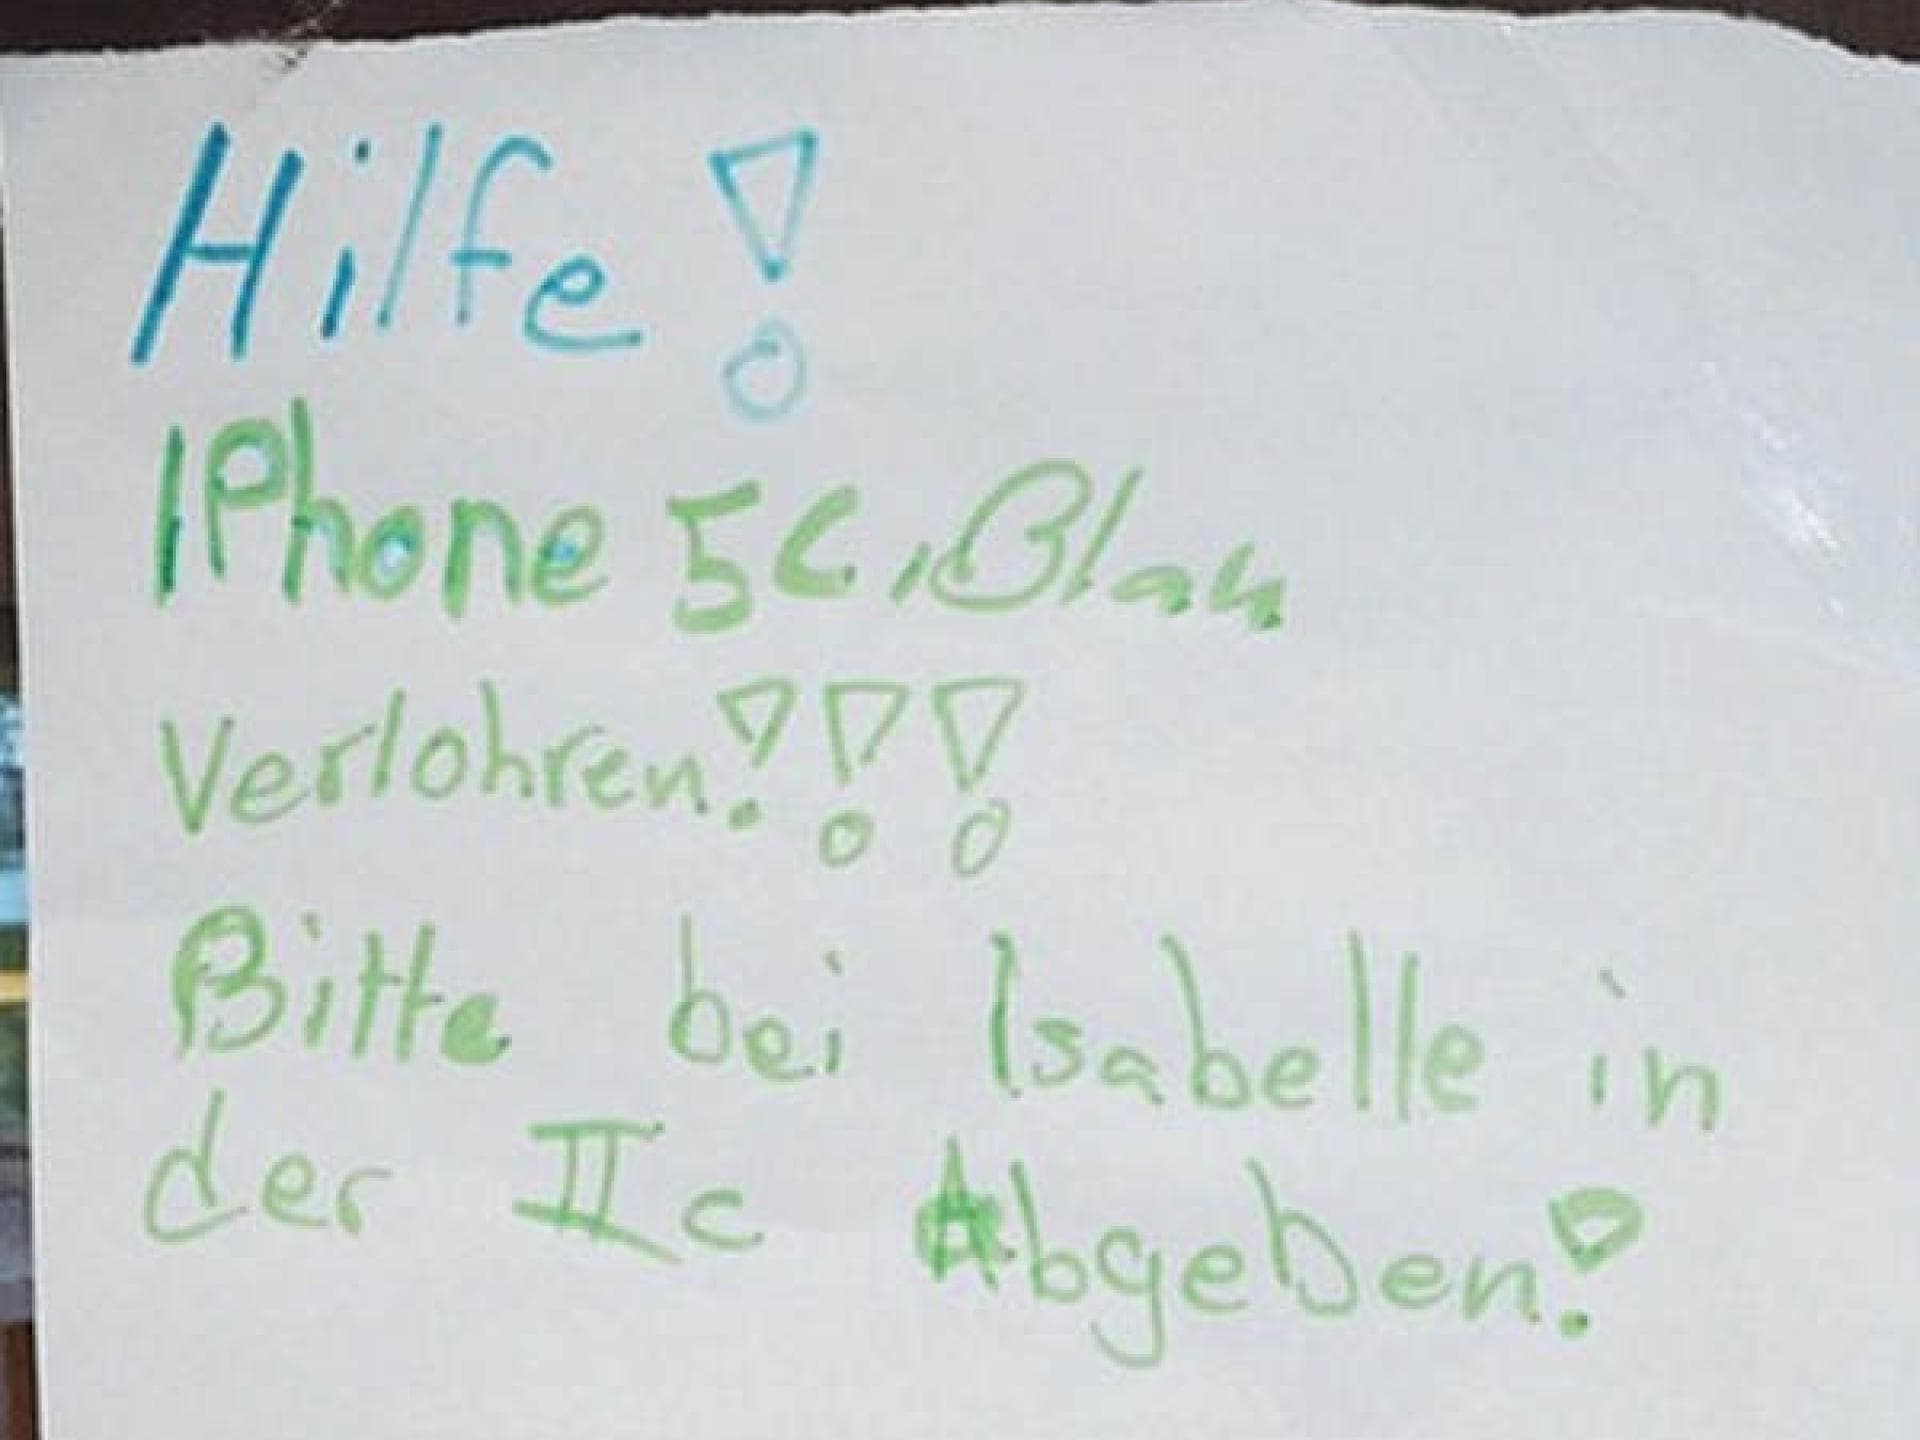 Hilfe!
IPhone 5C, Blau
Verlohren!!!
Bitte bei Isabelle in
der IIc Abgeben!